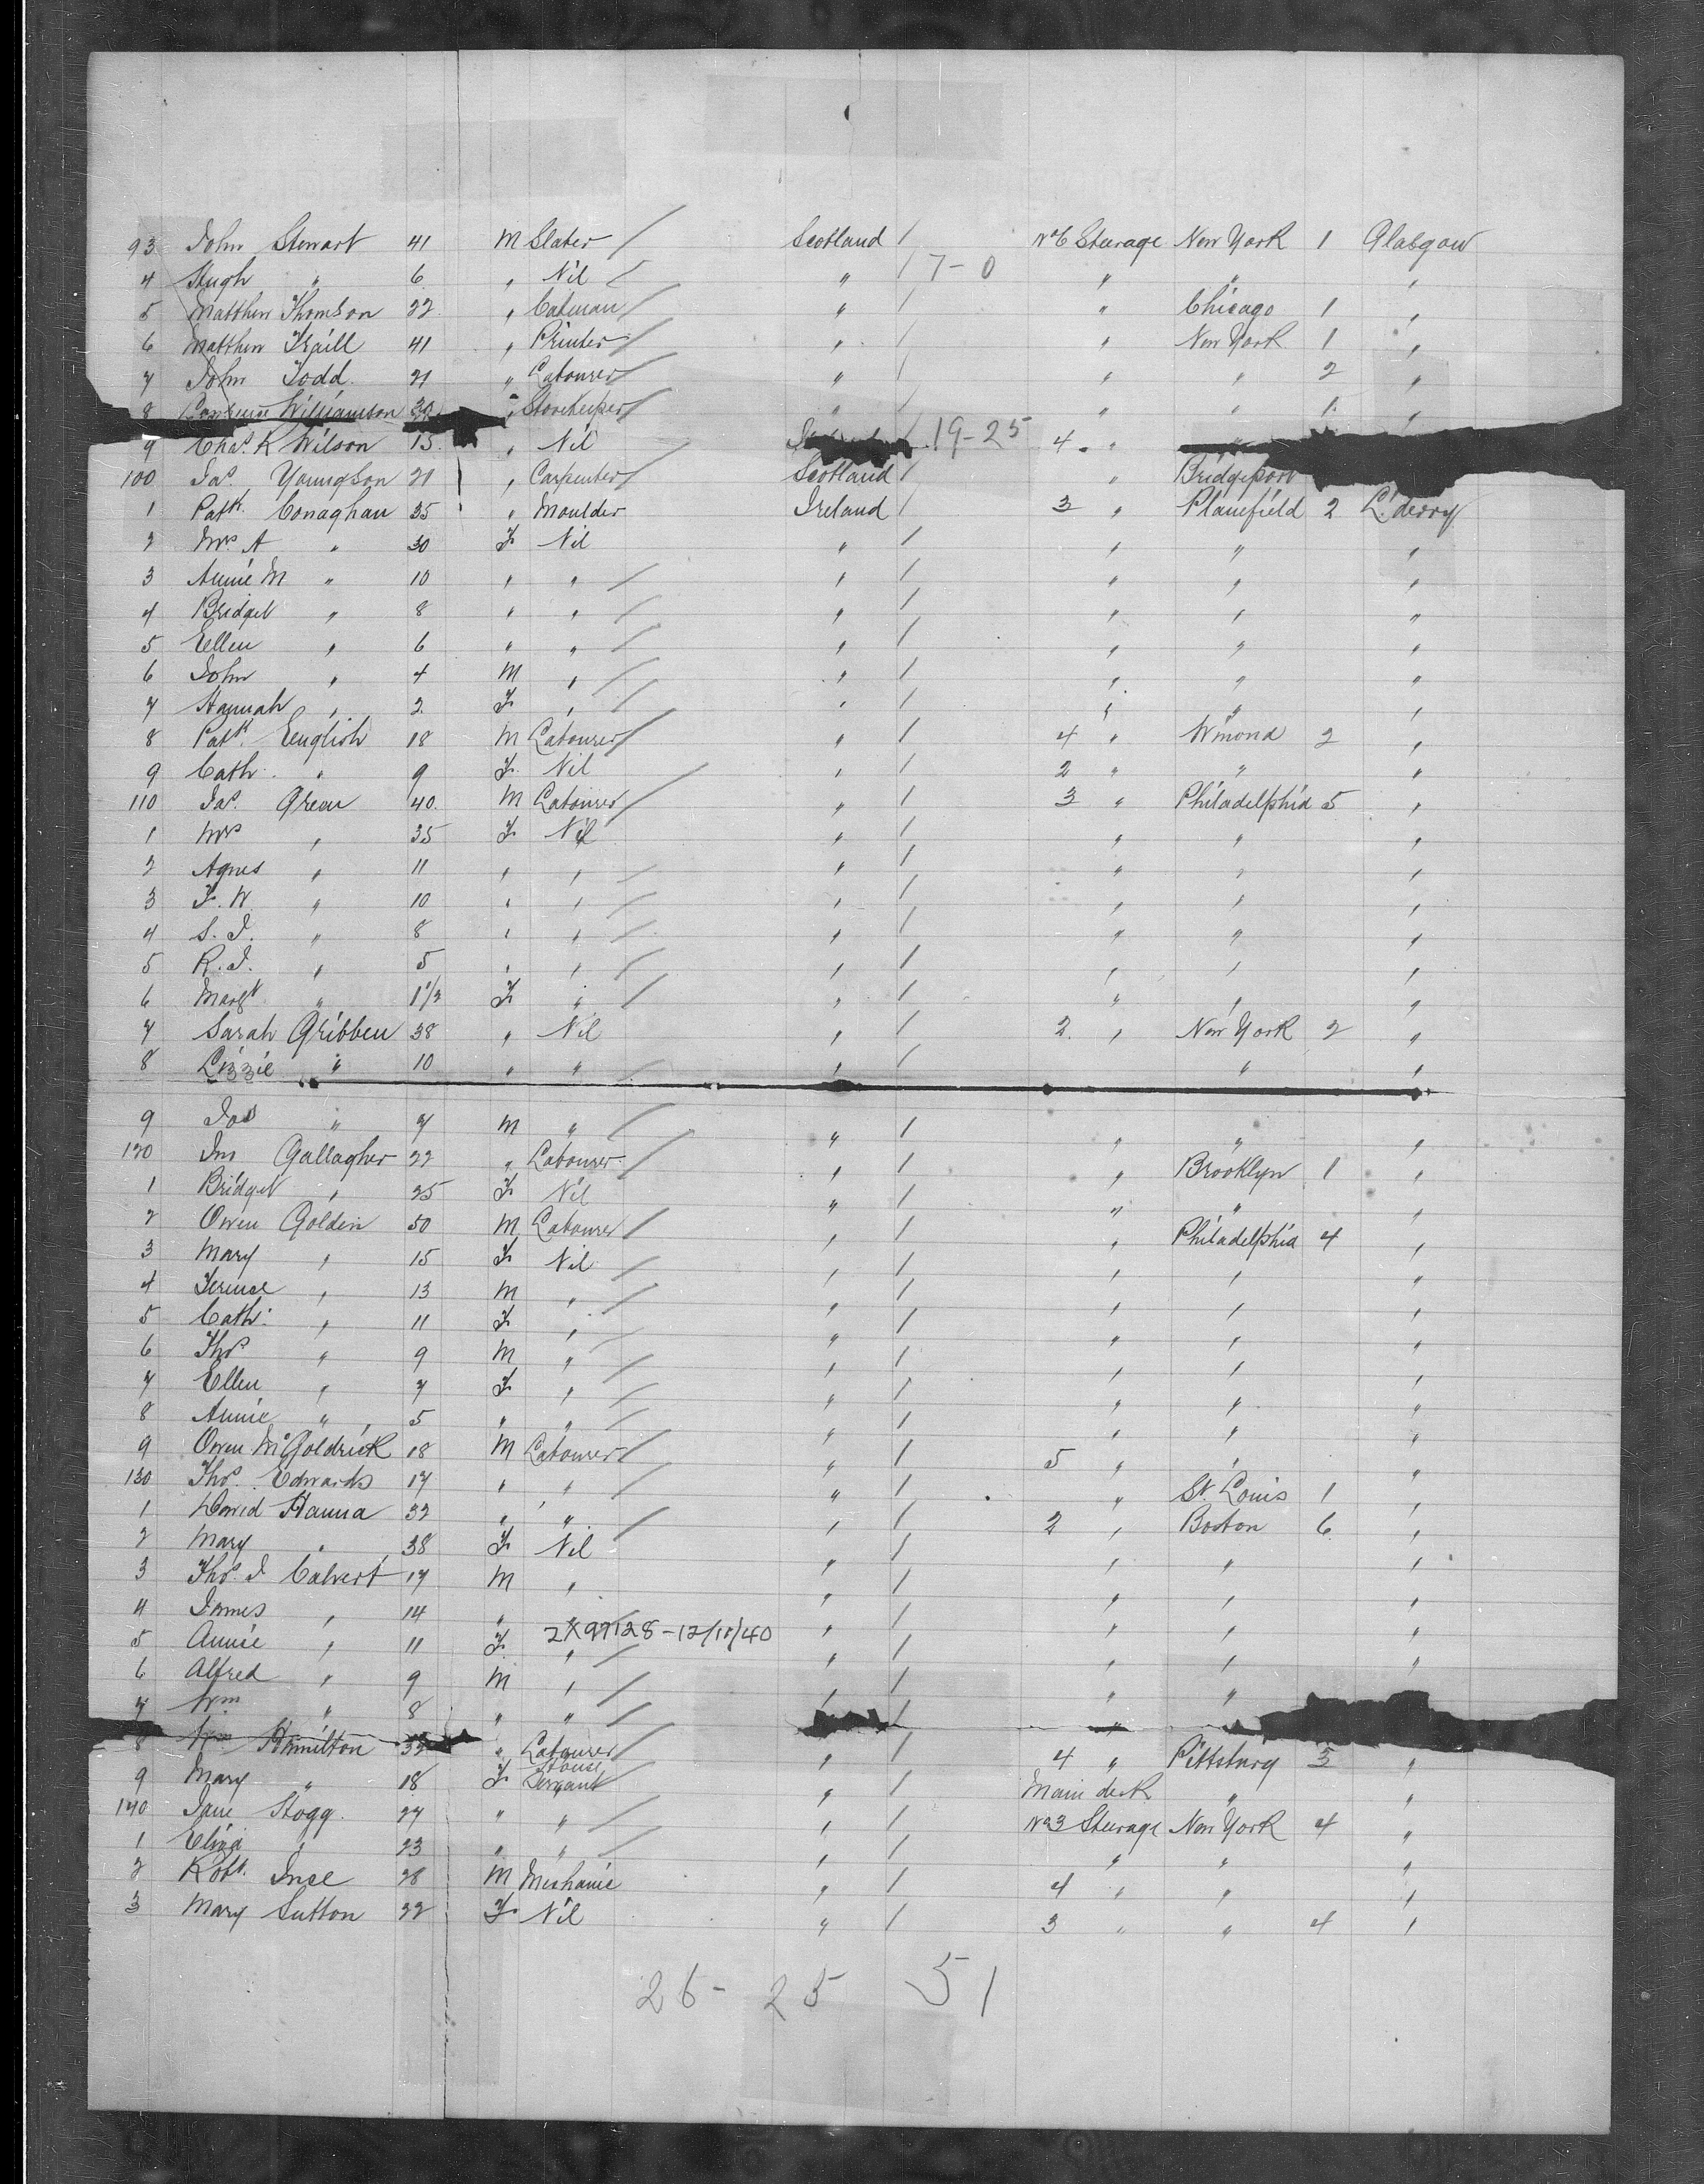 93 John Stewart 41 M Slater / Scotland / No 6 Steerage New York 1 Glasgow
4 Hugh " 6 " Nil / " / 7-0 " " "
5 Matthew Thomson 22 " / " / " Chicago 1 "
6 Matthew Traill 41 " Printer / " / " New York 1 "
7 John Todd 21 " Labourer / " / " " 2 "
8 Williamson " Storekeeper / " / " " 1 "
9 Chas. R Wilson 15 " Nil / 19-25 4 " "
100 Jas Youngson 21 " Carpenter / Scotland / " Bridgeport
1 Patk. Conaghan 35 " Moulder Ireland / 3 " Planefield 2 L'derry
2 Mrs A " 30 F Nil " / " " "
3 Annie M " 10 " " / " / " " "
4 Bridget " 8 " " / " / " " "
5 Ellen " 6 " " / " / " " "
6 John " 4 M " / " / " " "
7 Hannah " 2 F " / " / " " "
8 Patk. English 18 M Labourer / " / 4 " 2 "
9 Cath. " 9 F Nil " / 2 " " "
110 Jas. Green 40 M Labourer / " / 3 " Philadelphia 5 "
1 Mrs " 35 F Nil " / " " "
2 Agnes " 11 " " / " / " " "
3 F. W. " 10 " " / " / " " "
4 S. J. " 8 " " / " / " " "
5 R. J. " 5 " " / " / " " "
6 Margt " 1 1/2 F " / " / " " "
7 Sarah Gribben 38 " Nil " / 2 " New York 2 "
8 Lizzie " 10 " " / " / " "
9 Jas " 7 M " / " / " " "
120 Jno Gallagher 22 " Labourer / " / " Brooklyn 1 "
1 Bridget " 25 F Nil " / " " "
2 Owen Golden 50 M Labourer / " / " Philadelphia 4 "
3 Mary " 15 F Nil / " / " " "
4 Terence " 13 M " / " / " " "
5 Cath. " 11 F " / " / " " "
6 Thos " 9 M " / " / " " "
7 Ellen " 7 F " / " / " " "
8 Annie " 5 " " / " / " " "
9 Owen McGoldrick 18 M Labourer / " / 5 " " "
130 Thos. Edwards 17 " " / " / " St. Louis 1 "
1 David Hanna 32 " " / " / 2 " Boston 6 "
2 Mary " 38 F Nil " / " " "
3 Thos. J Calvert 17 M " " / " " "
4 James " 14 " " " / " " "
2X97128-12/11/40
5 Annie " 11 F " / " / " " "
6 Alfred " 9 M " / " / " "
7 Wm " 8 " " / / "
8 Wm Hamilton " Labourer / " / 4 " Pittsburg 3 "
9 Mary " 18 F House Servant / " / Main deck " "
140 Jane Hogg 27 " " / " / No 3 Steerage New York 4 "
1 Eliza " 23 " " / " / " " "
2 Robt. Ince 28 M Mechanic " / 4 " " "
3 Mary Sutton 22 F Nil " / 3 " " 4 "
26- 25 51